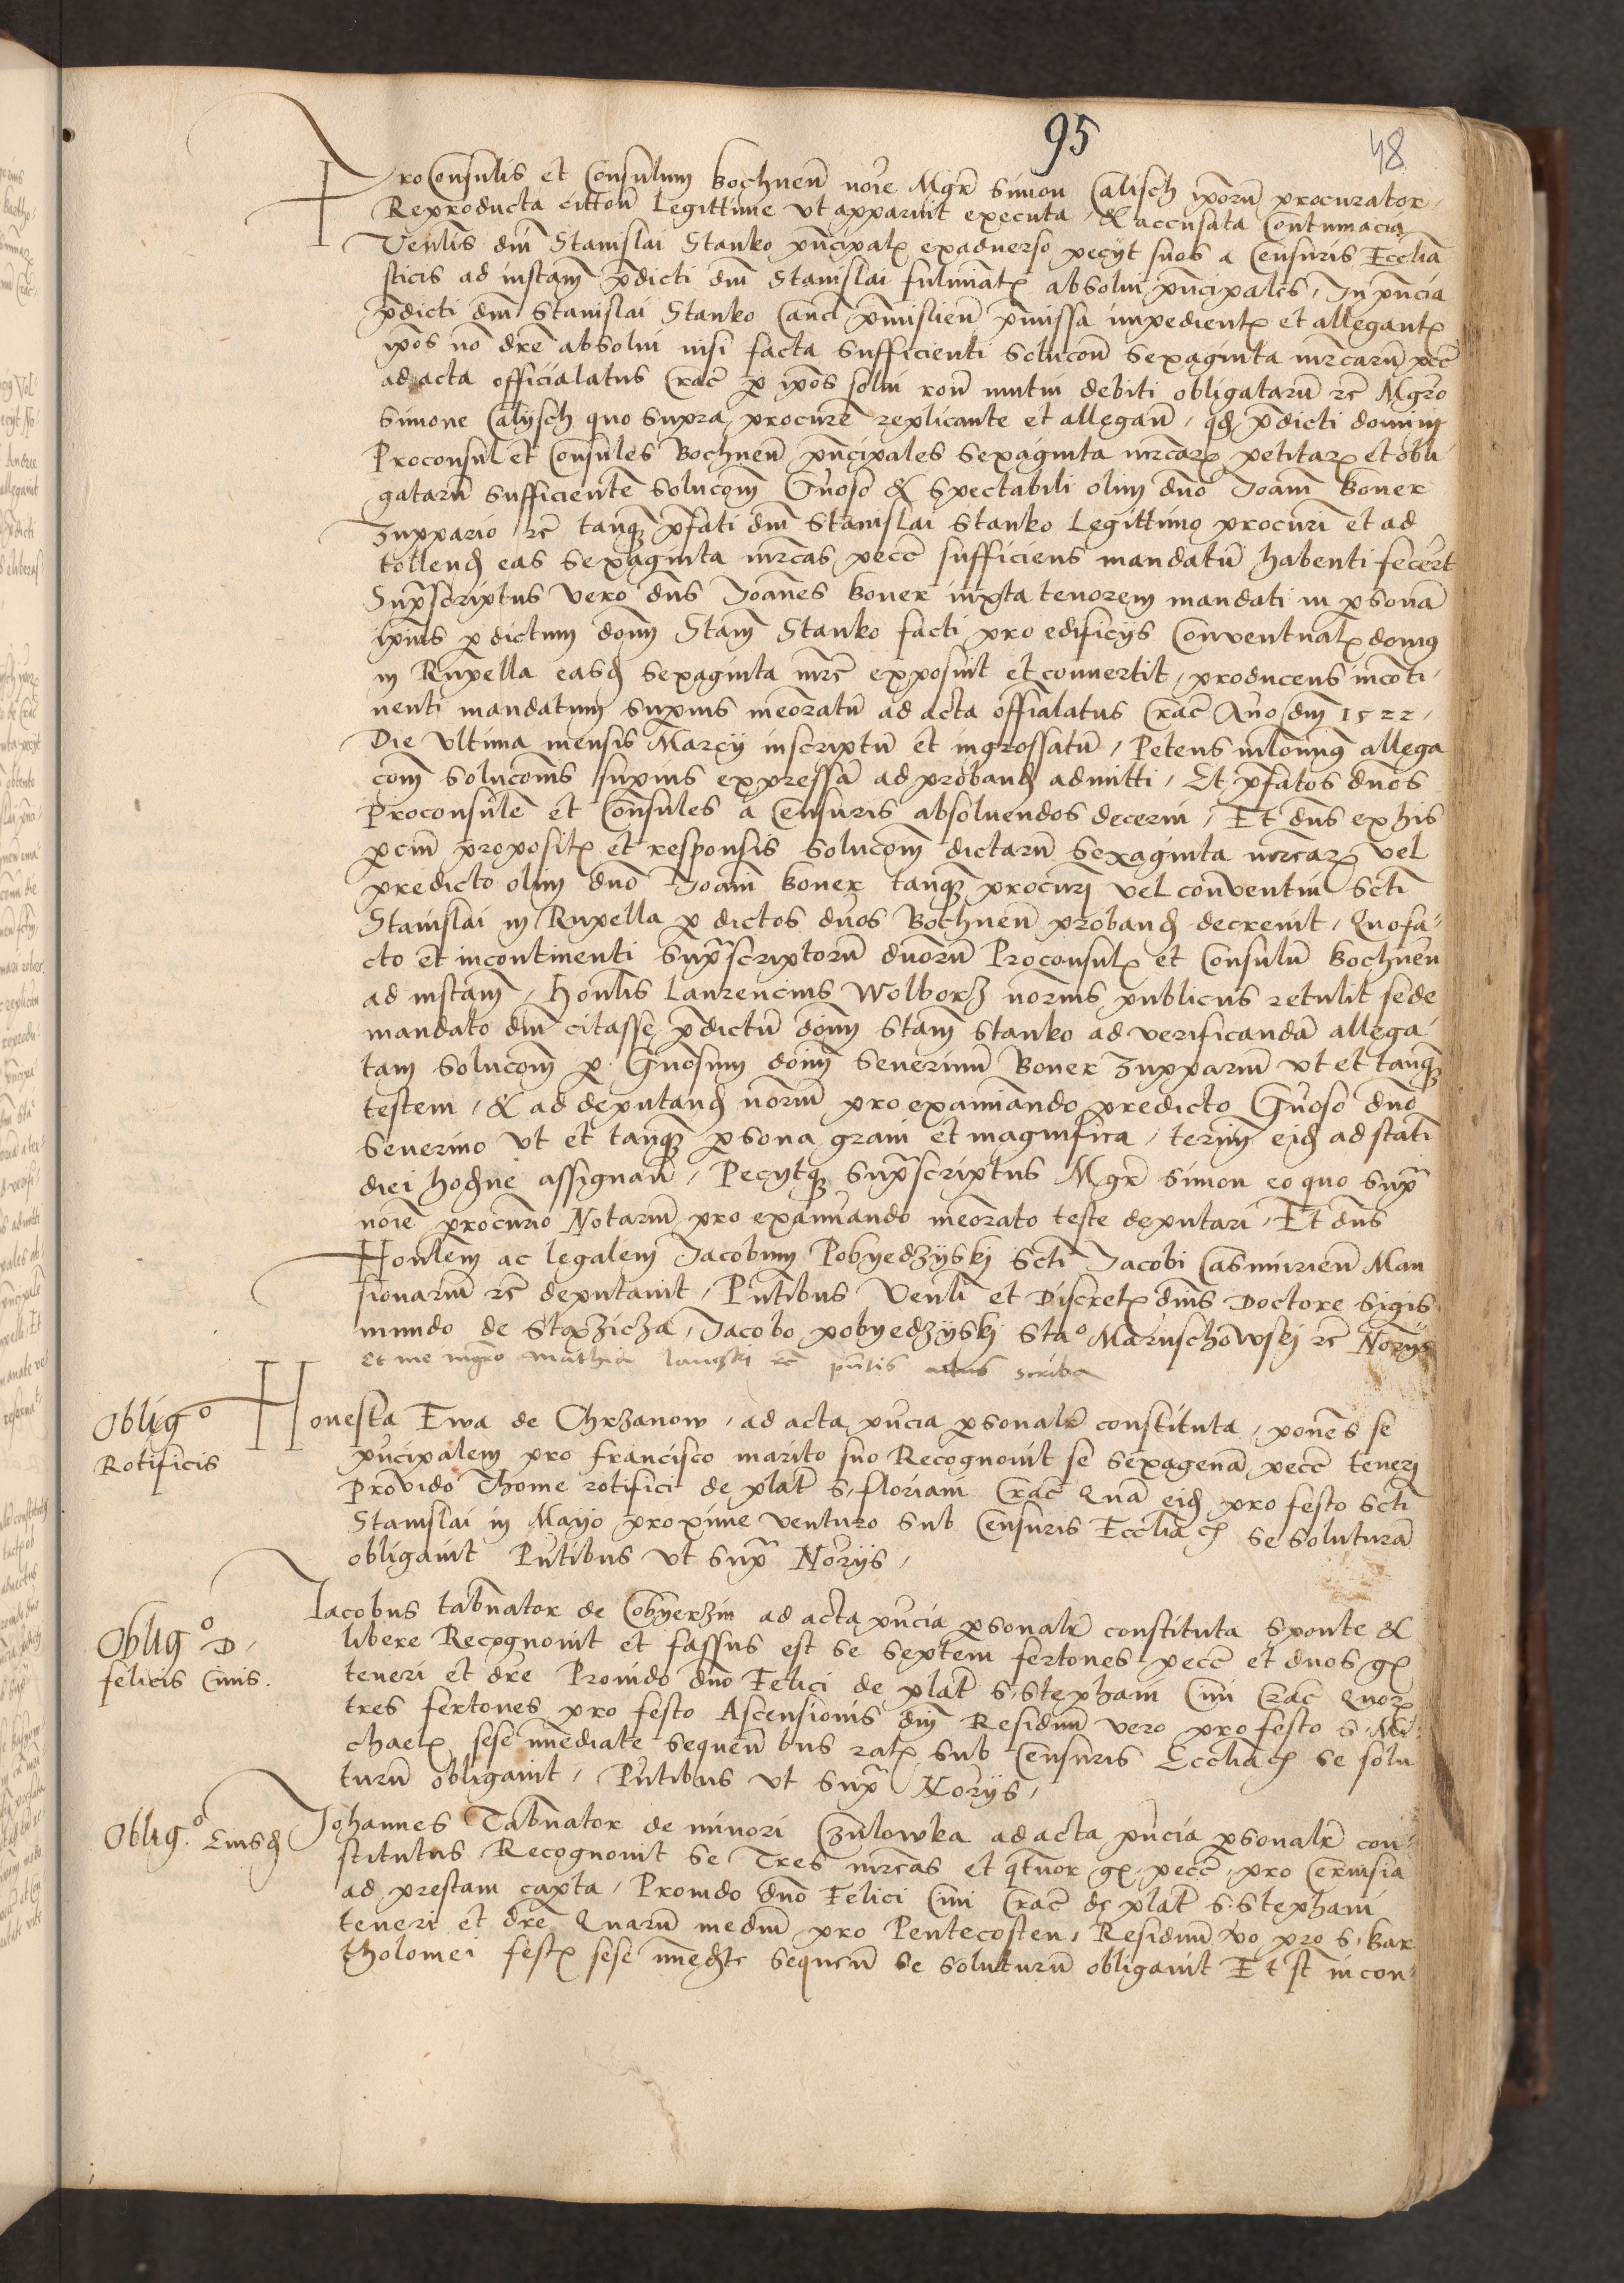 95
48
ProConsulis et Consulum Bochnen̄ noīe Mgr̄ Simon Calisch ip̄orū procurator,
Reproducta citton̄ Legittime vt apparuit executa, & accusata Contumacia
Venl̄is dn̄i Stanislai Stanko pn̄cipal exaduerso pecijt suos a Censuris Ecclīa
sticis ad instan̄ p̄dicti dn̄i Stanislai fulminat absolui pn̄cipales, In pn̄cia
p̄dicti dn̄i Stanislai Stanko Canc̄ p̄mislien̄ p̄missa impedient et allegant
ip̄os nō dr̄e absolui nisi facta Sufficienti Solucon̄ Sexaginta mr̄carū pec̄c
ad acta officialatus Crac̄ p ip̄os solui ron̄ mutui debiti obligatarū rc̄ Mgrō
Simone Calijsch quo Supra procurē replicante et allegan̄, qd p̄dicti domini
Proconsul et Consules Bochnen̄ pn̄cipales Sexaginta mr̄car petitar et obli
gatarū Sufficientē Solucom̄ Gn̄oso & Spectabili olim dn̄o Joan̄i Boner
Zuppario rc̄ tanq p̄fati dn̄i Stanislai Stanko Legittimo procur̄i et ad
tollend eas Sexaginta mr̄cas pec̄c Sufficiens mandatū habenti fecer̄t
Suprascriptus vero dn̄s Joānes Boner iuxta tenorem mandati in psonā
ip̄ius p dictum dom̄ Stan̄ Stanko facti pro edificijs Conventual domus
in Rupella easd Sexaginta mr̄c exposuit et conuertit, producens incōti,
nenti mandatum Supius meōratū ad acta offīalatus Crac̄ Año dn̄i 1522,
Die vltima mensis Marcij inscriptū et ingrossatū, Petens allega
com̄ Solucoīs Supius expressā ad proband admitti, Et p̄fatos dn̄os
Proconsulē et Consules a Censuris absoluendos decerni, Et dn̄s ex his
pcīm proposit et responsis Solucom̄ dictarū Sexaginta mr̄car vel
predicto olim dn̄o Joan̄i Boner tanq procur̄i vel conventui Sct̄i
Stanislai in Rupella p dictos dn̄os Bochnen̄ proband decreuit, Quofa,
cto et incontinenti Supr̄ascriptorū dn̄orū Proconsul et Consulū Bochnen̄
ad instan̄, Honl̄is Laurencius Wolborz nor̄ius publicus retulit se de
mandato dn̄i citasse p̄dictū dom̄ Stan̄ Stanko ad verificandā allega,
tam Solucom̄ p Gn̄osum dom̄ Seuerinū Boner Zupparium vt et tanq
testem, & ad deputand nor̄ium pro examinando predicto Gn̄oso dn̄o
Seuerino vt et tanq psona graui et magnifica, termin̄ eid ad stati
diei hodn̄e assignan̄, Pecijtq Supr̄ascriptus Mgr̄ Simon eo quo Supr̄
noīe procurio Notariū pro examinando meōrato teste deputari, Et dn̄s
Honl̄em ac legalem Jacobum Pobyedzijskj Sct̄i Jacobi Casmirien̄ Man
sionariū rc̄ deputauit, Pn̄tibus Venl̄i et Discret dn̄is Doctore Sigis
mundo de Stqzicza, Jacobo pobyedzijskj Stao Maruschowskj rc̄ Nor̄ijs
Et me mgrō Mathia rc̄ pn̄tis actus scriba
Obligo
Rotificis
Honesta Ewa de Chrzanow, ad acta pn̄cia psonalr̄ constituta, ponēs se
pn̄cipalem pro francisco marito suo Recognouit se Sexagenā pec̄c teneri
Prouido Thome rotifici de plat̄ S. floriani Crac̄ Quā eid pro festo Sct̄i
Stanislai in Mayo proxime venturo Sub Censuris Ecclīac se soluturā
obligauit Pn̄tibus vt Supr̄ Nor̄ijs,
Obligo D.
felicis Ciuis.
Jacobus tabn̄ator de Cobyerzin ad acta pn̄cia psonalr̄ constituta Sponte &
libere Recognouit et fassus est se Septem fertones pec̄c et duos g
teneri et dr̄e Prouido dn̄o Felici de plat̄ S. Stephani Ciui Crac̄ Quor
tres fertones pro festo Ascensionis dn̄i Residuū vero pro festo S. Mi,
chael sese īmediate sequen̄bus rat Sub Censuris Ecclīac se solu
turū obligauit, Pn̄tibus vt Supr̄ Nor̄ijs,
Obligo Eiusd
Johannes Tabn̄ator de minori Czulowka ad acta pn̄cia psonalr̄ con,
stitutus Recognouit se Tres mr̄cas et qtuor g pec̄c, pro Ceruisia
ad prestam capta, Prouido dn̄o Felici Ciui Crac̄ de plat̄ S. Stephani
teneri et dr̄e Quarū mediū pro Pentecosten, Residuū vo pro S. Bar
tholomei fest sese īmedte sequen̄ se soluturū obligauit Et st incon,